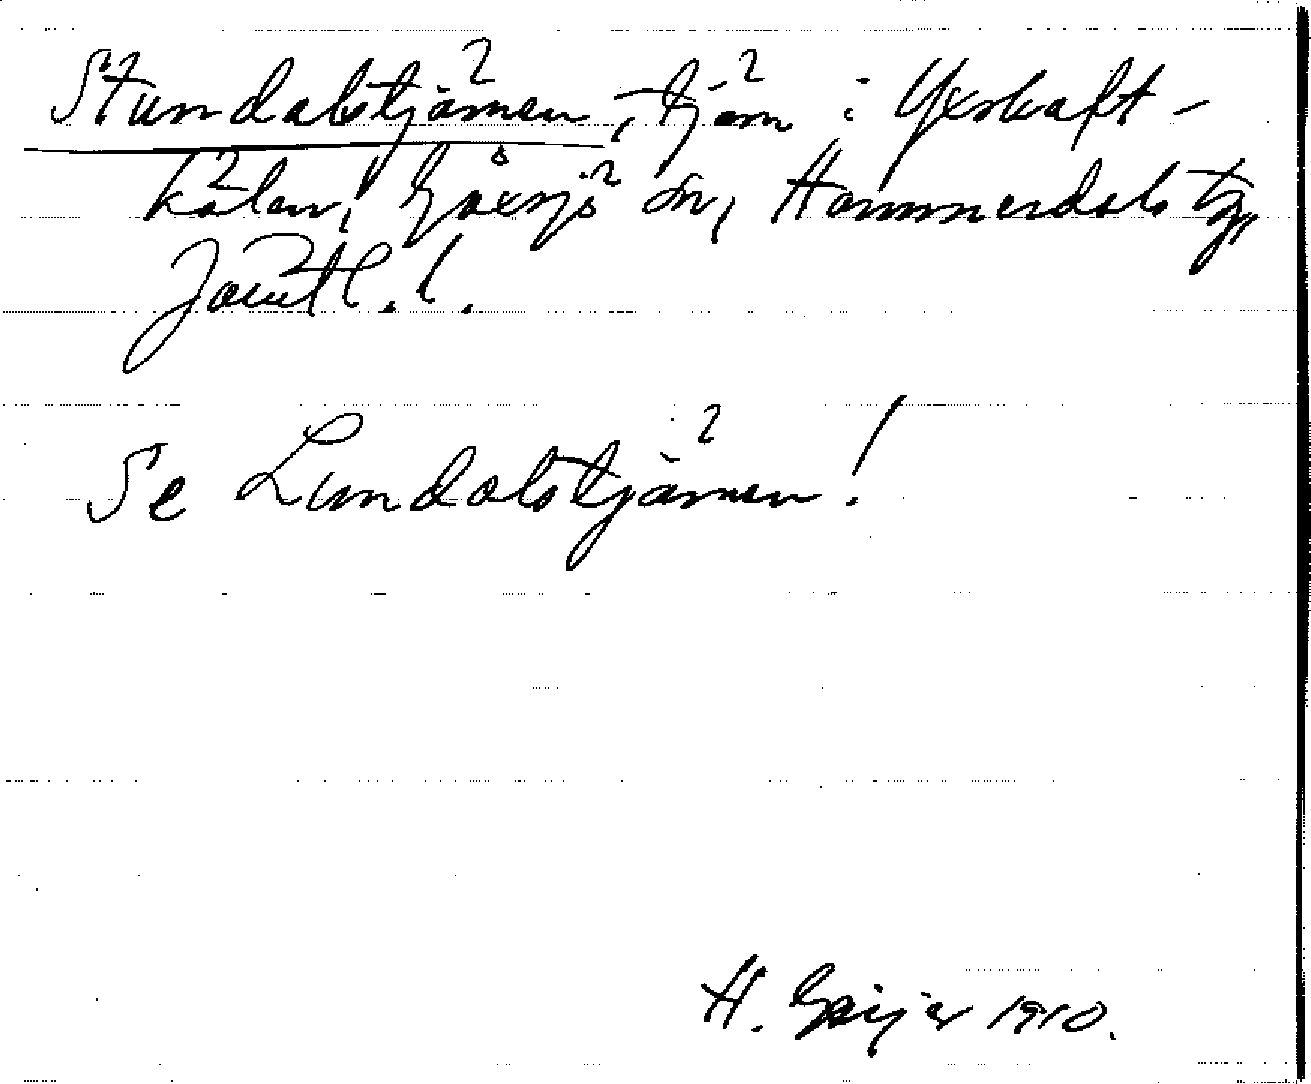 Stundalstjärnen, tjärn i Yxskaft-
kälen, Gåxsjö sn, Hammerdals tg,
Jämtl. l.
Se Lundalstjärnen!
H. Geijer 1910.